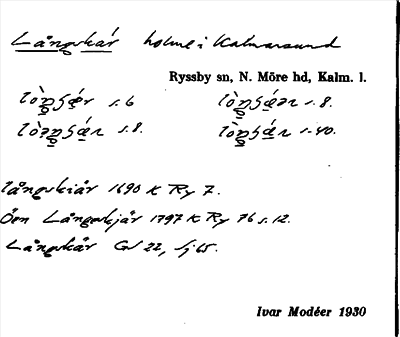 Långskär holme i Kalmarsund
Ryssby sn, N. Möre hd, Kalm. l.
s. 6 s. 8.
s. 8. s. 40.
Långskiär 1690 K Ry 7.
Ön Långskjär 1797 K Ry 76 s. 12.
Långskär GS 22, Sj 65.
Ivar Modéer 1930